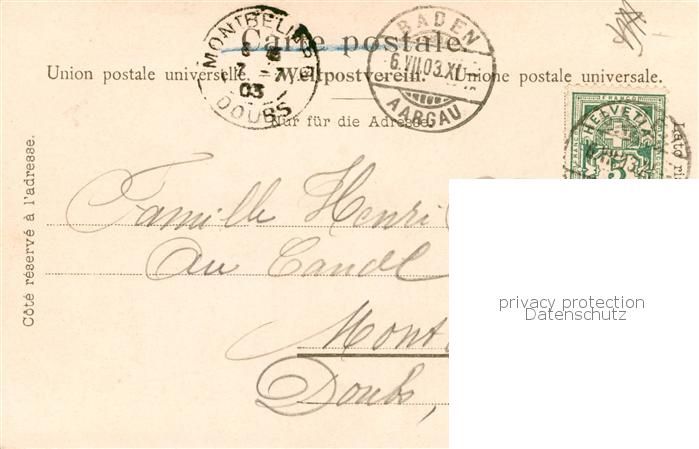 Carte postale.
Union postale universelle. — Weltpostverein. — Unione postale universale.
Nur für die Adresse.
Côté réservé à l'adresse.
MONTBELIARD
7 - 7
03
DOUBS
BADEN
6.VII.03.XI
AARGAU
FRANCO
HELVETIA
Famille Henri
au Canal
Mont
Doubs,
privacy protection
Datenschutz